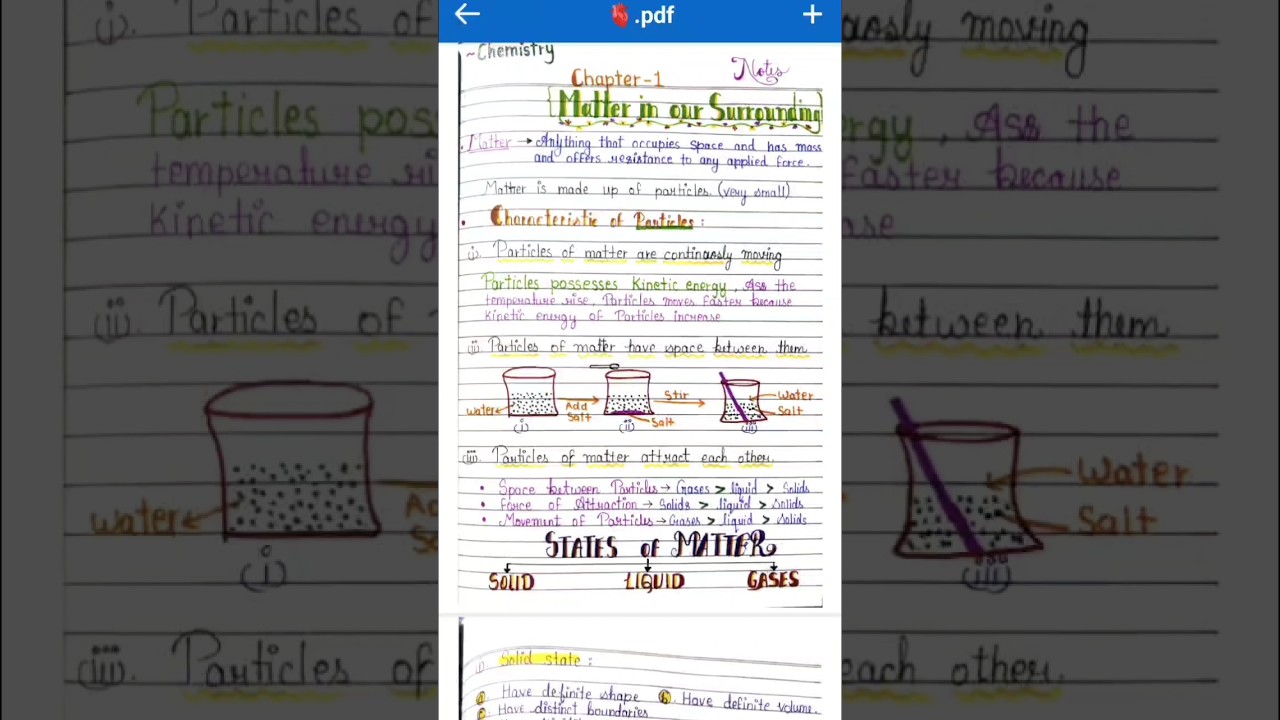 .pdf
~Chemistry
Notes
Chapter-1
Matter in our Surrounding
Matter → Anything that occupies space and has mass
and offers resistance to any applied force.
Matter is made up of particles. (very small)
• Characteristic of Particles :
i). Particles of matter are continuously moving
Particles possesses Kinetic energy, Ass the
temperature rise, Particles moves faster because
Kinetic energy of Particles increase
ii) Particles of matter have space between them
water
Add
Salt
Salt
Stir
Water
Salt
(i)
(ii)
(iii)
iii). Particles of matter attract each other.
• Space between Particles → Gases > liquid > Solids
• Force of Attraction → Solids > liquid > Solids
• Movement of Particles → Gases > liquid > Solids
STATES of MATTER
SOLID LIQUID GASES
i) Solid state :
a Have definite shape b Have definite volume.
c Have distinct boundaries